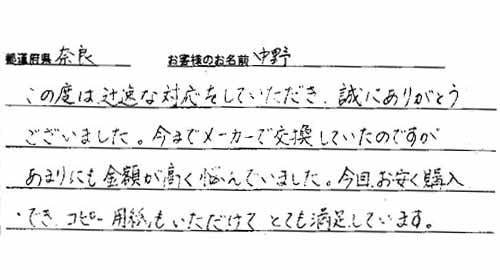 都道府県 奈良 お客様のお名前 中野
この度は、迅速な対応をしていただき、誠にありがとう
ございました。今までメーカーで交換していたのですが
あまりにも金額が高く悩んでいました。今回、お安く購入
でき、コピー用紙もいただけて とても満足しています。